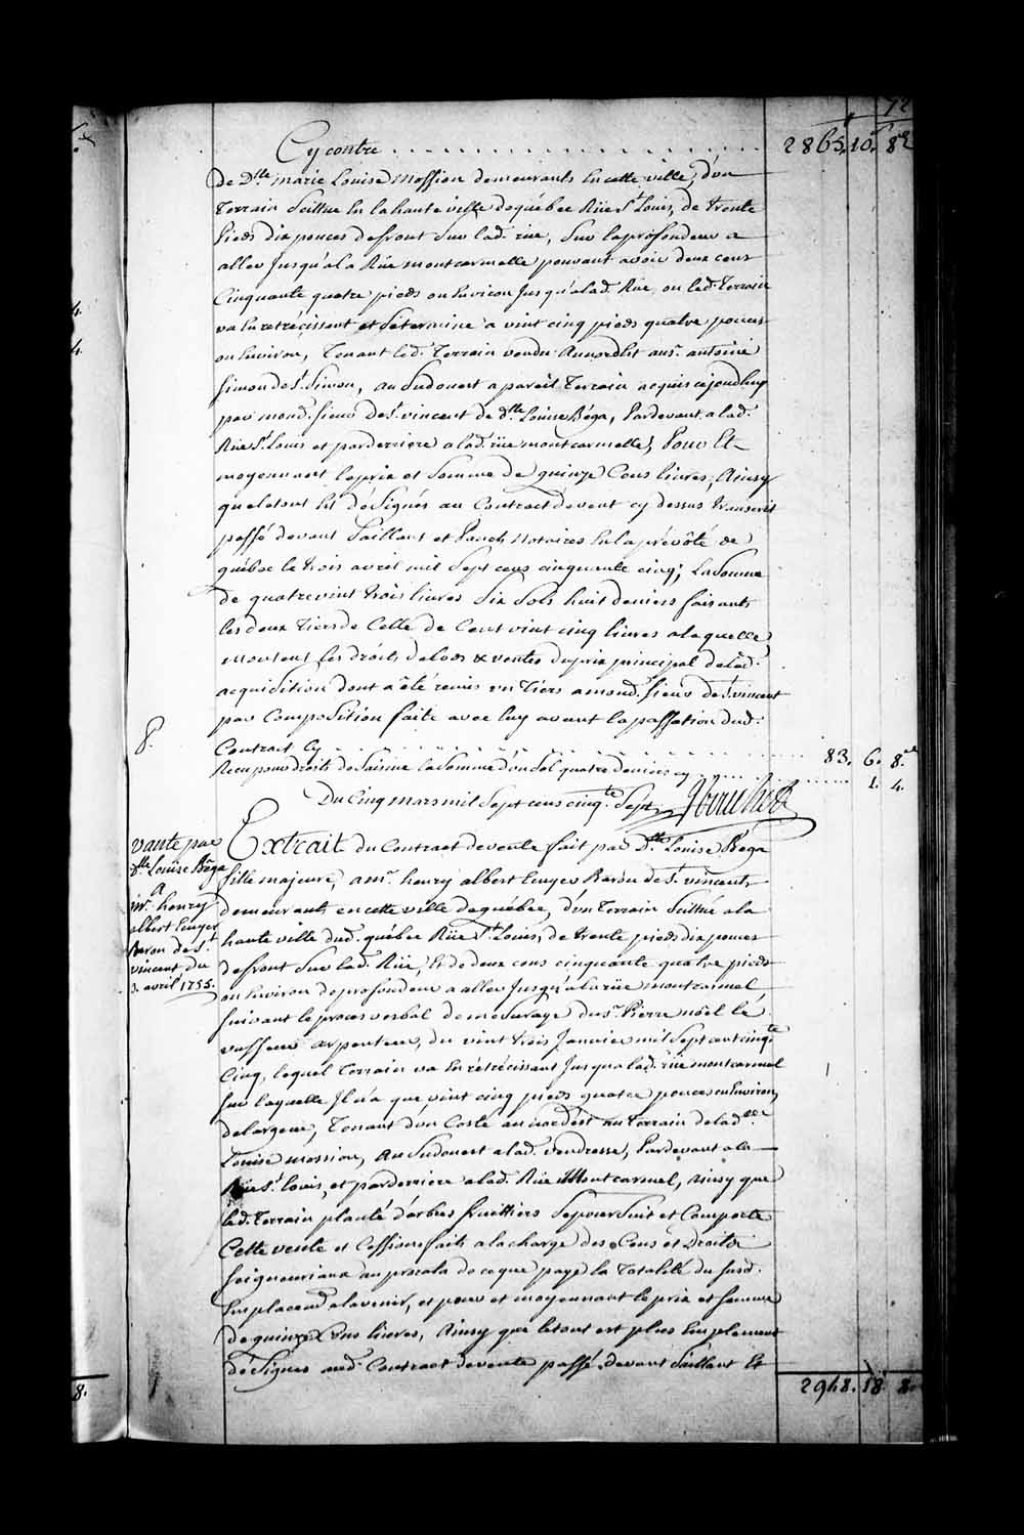 72
Cy contre . . . . . . . . . . . . . 2865. 10. 8d
De Dlle marie Louise Mossion demeurants En cette ville, d'un
Terrain Scittué En la haute ville de québec Rüe St Louis, de trente
Pieds dix pouces de front Sur lad. rüe, Sur la profondeur a
aller Jusqu'a la Rüe montcarmelle pouvant avoir deux cens
Cinquante quatre pieds ou Environ Jusqu'a lad. Rüe, ou led. Terrain
va En retrécissant et Se termine a vint cinq pieds quatre pouces
ou Environ, Tenant led. Terrain vendu Au nordest au sr. antoine
Simon de St. Simon, au Sudouest a pareil Terrain acquis cejourdhuy
par mond. sieur de St. vincent de dlle Louise Béga, Pardevant a lad.
Rüe St Louis et parderriere a lad. rüe montcarmelle, Pour Et
moyennant le prix et Somme de quinze Cens livres, Ainsy
que le tout Est désigné au Contract de vent cy dessus transcrit
passé devant Saillant et Panet Notaires En la prévôté de
québec le trois avril mil Sept cens cinquante cinq; La Somme
de quatrevint trois livres Six Sols huit deniers faisants
les deux Tiers de Celle de Cent vint cinq livres a laquelle
montent les droits de lods & ventes du prix principal de lad.
acquisition dont a été remis un Tiers a mond. sieur de St. vincent
par Composition faite avec luy avant la passation dud.
8. Contract Cy . . . . . . . . . . . . . 83. 6. 8d
Reçu pour droits de Saisine la Somme d'un Sol quatre deniers cy . . . . . 1. 4.
Du Cinq mars mil Sept cens cinqte Sept
vante par
dlle Louise Béga
A
mr. henry
albert Euyer
Baron de St.
vincent du
3. avril 1755.
Extrait du Contract de vente fait par Dlle Louise Béga
fille majeure, a mr. henry albert Euyer Baron de St. vincent
demeurants en cette ville de québec, d'un Terrain Scittué a la
haute ville dud. québec Rüe St Louis, de trente pieds dix pouces
de front Sur lad. Rüe, Et de deux cens cinquante quatre pieds
ou Environ de profondeur a aller Jusqu'a la rüe montcarmel
Suivant le proces verbal de mesurage du sr. Pierre noël le
vasseur arpenteur, du vint trois Janvier mil Sept cent cinqte
Cinq, lequel Terrain va En rétrécissant Jusqu'a lad. rüe montcarmel
Sur laquelle Jl n'a que vint cinq pieds quatre pouces ou Environ
de largeur, Tenant d'un Costé au nordest au Terrain de lad. dlle
Louise mossion, Au Sudouest a lad. Venderesse, Pardevant a la
Rüe St. louis, et parderriere a lad. Rüe Montcarmel, Ainsy que
led. Terrain planté d'arbres fruittiers Se poursuit et Comporte
Cette vente et Cession faite a la charge des Cens et Droits
Seigneuriaux au prorata de ce que paye la Totalité du susd.
Emplacemt a l'avenir, et pour et moyennant le prix et somme
de quinze Cens livres, Ainsy que le tout est plus Emplement
désigné aud. Contract de vente passé devant Saillant Et
2948. 18. 8.